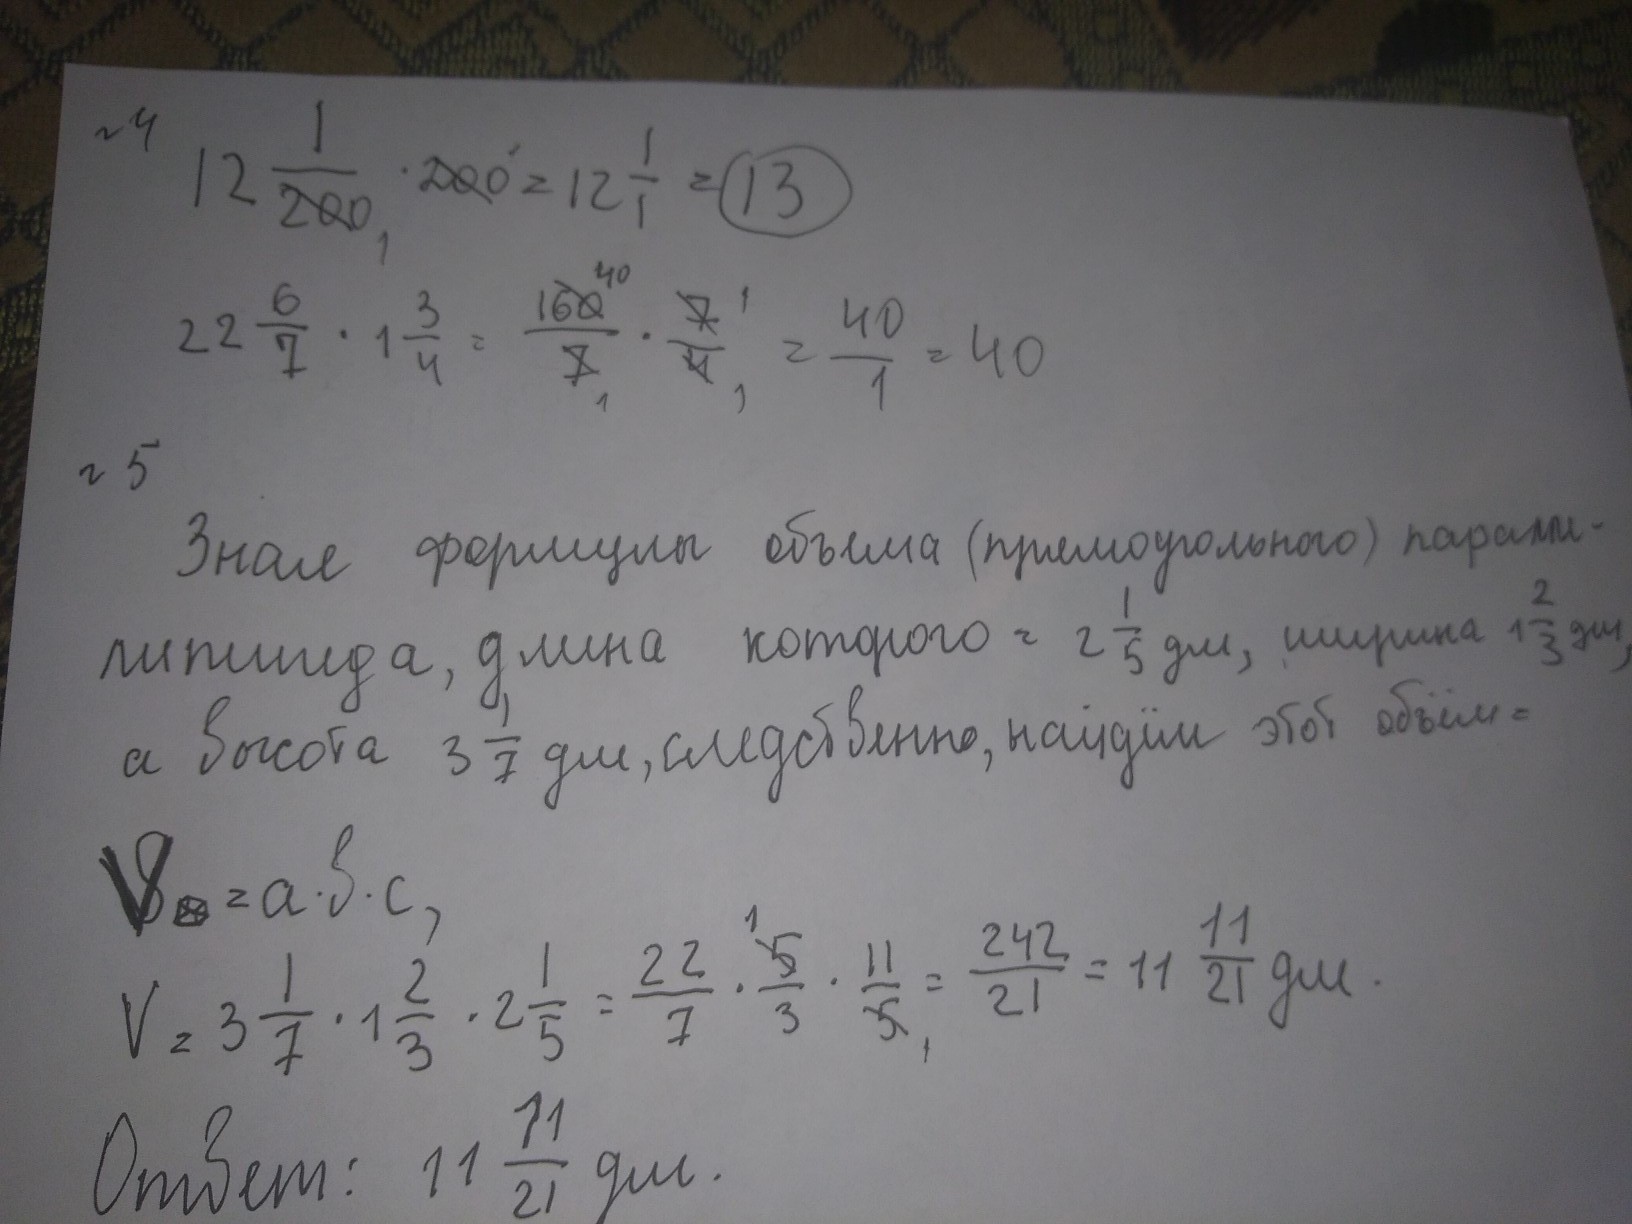 №4
12 1/200 · 200 = 12 1/1 = 13
22 6/7 · 1 3/4 = 160/7 · 7/4 = 40/1 = 40
№5
Зная формулы объема (прямоугольного) паралле-
липипида, длина которого = 2 1/5 дм, ширина 1 2/3 дм,
а высота 3 1/7 дм, следственно, найдём этот объём =
V = а·в·с,
V = 3 1/7 · 1 2/3 · 2 1/5 = 22/7 · 5/3 · 11/5 = 242/21 = 11 11/21 дм.
Ответ: 11 11/21 дм.